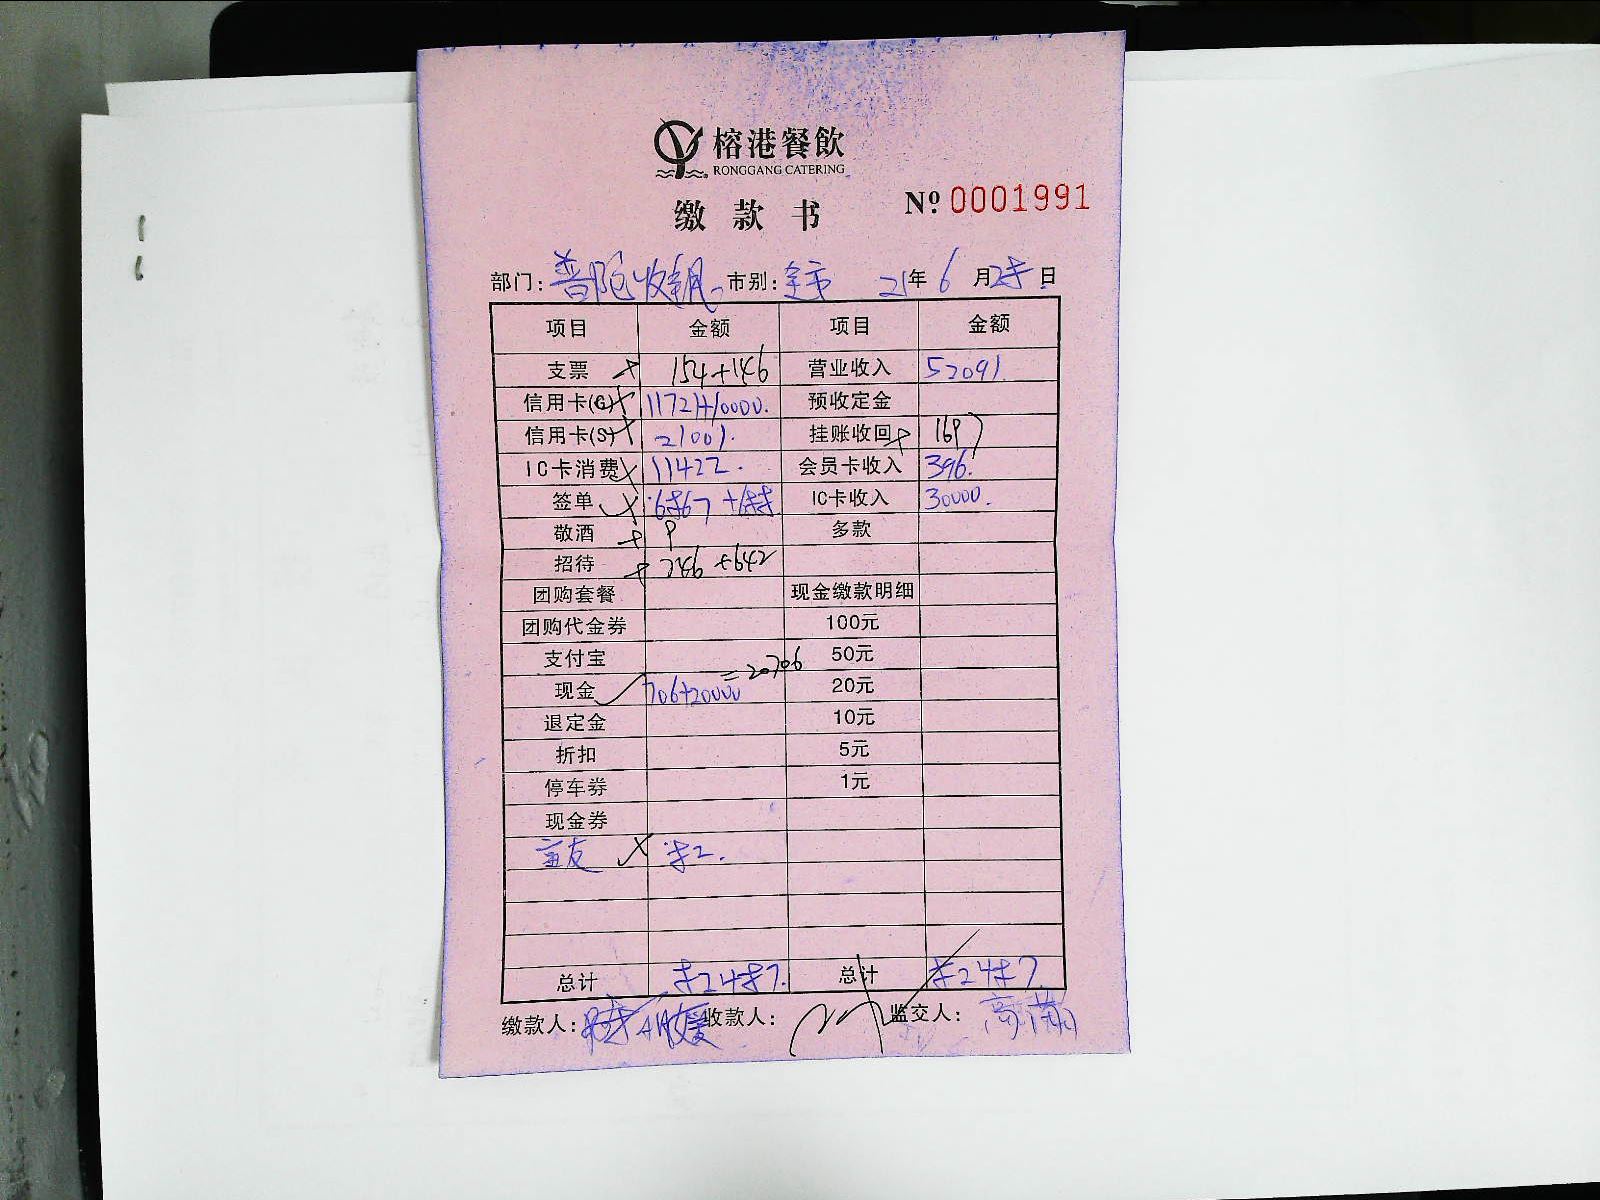 榕港餐飲
RONGGANG CATERING
缴款书
№ 0001991
部门: 普陀收银 市别: 全市 21年 6月28日
项目 金额 项目 金额
支票 154+146 营业收入 52091.
信用卡(G) 11721+10000. 预收定金
信用卡(S) 21001. 挂账收回
IC卡消费 11422. 会员卡收入 396.
签单 6867+688 IC卡收入 30000.
敬酒 多款
招待
团购套餐 现金缴款明细
团购代金券 100元
支付宝 50元
现金 706+20000 =20706 20元
退定金 10元
折扣 5元
停车券 1元
现金券
82.
总计 82487. 总计 82487
缴款人: 收款人: 监交人: